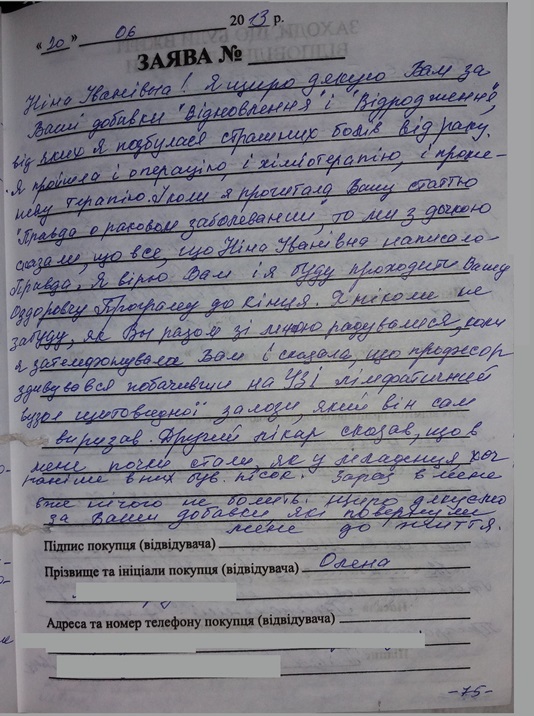 « 20 » 06 2013 р.
ЗАЯВА №
Ніна Іванівна! Я щиро дякую Вам за
Ваші добавки "Відновлення" і "Відродження",
від яких я позбулася страшних болів від раку.
Я пройшла і операцію, і хіміотерапію, і проме-
неву терапію. І коли я прочитала Вашу статтю
"Правда о раковом заболевании", то ми з дочкою
сказали, що все, що Ніна Іванівна написала-
правда. Я вірю Вам і я буду проходити Вашу
Оздоровчу Програму до кінця. Я ніколи не
забуду, як Ви разом зі мною радувалися, коли
я зателефонувала Вам і сказала, що професор
здивувався побачивши на УЗІ лімфатичний
вузол щитовидної залози, який він сам
вирізав. Другий лікар сказав, що в
мене почки стали як у младенца, хоч
раніше в них був пісок. Зараз в мене
вже нічого не болить. Щиро дякуємо
за Ваши добавки які повернули
мене до життя.
Підпис покупця (відвідувача)
Прізвище та ініціали покупця (відвідувача) Олена
Адреса та номер телефону покупця (відвідувача)
-75-